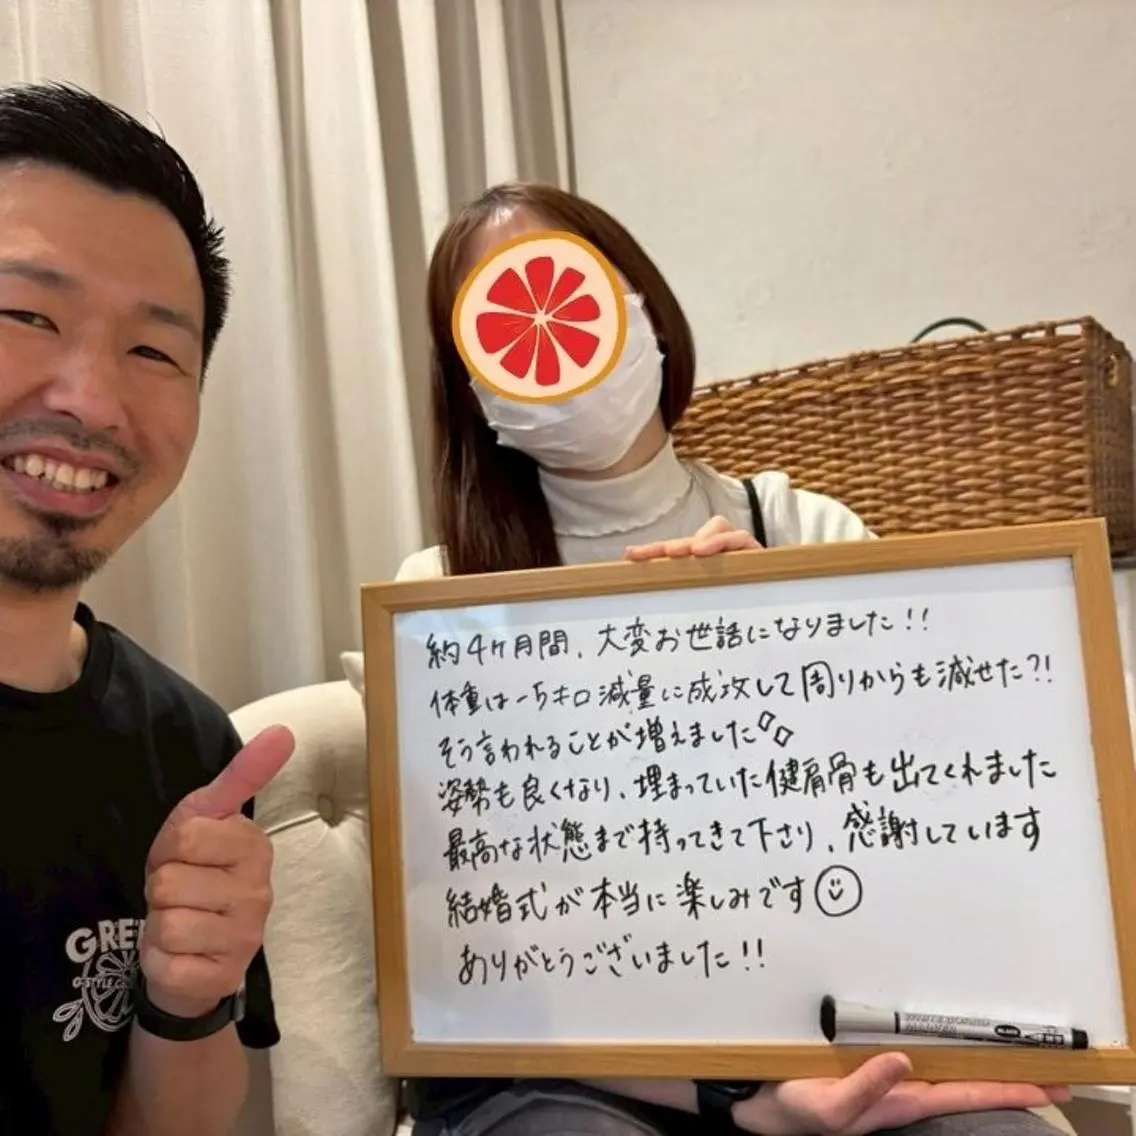 約4ケ月間、大変お世話になりました!!
体重は-5キロ減量に成功して周りからも減せた?!
そう言われることが増えました
姿勢も良くなり、埋まっていた健肩骨も出てくれました
最高な状態まで持ってきて下さり、感謝しています
結婚式が本当に楽しみです
ありがとうございました!!
WHITE BOARD
MARKER
BLACK
GREE
G-STYLE